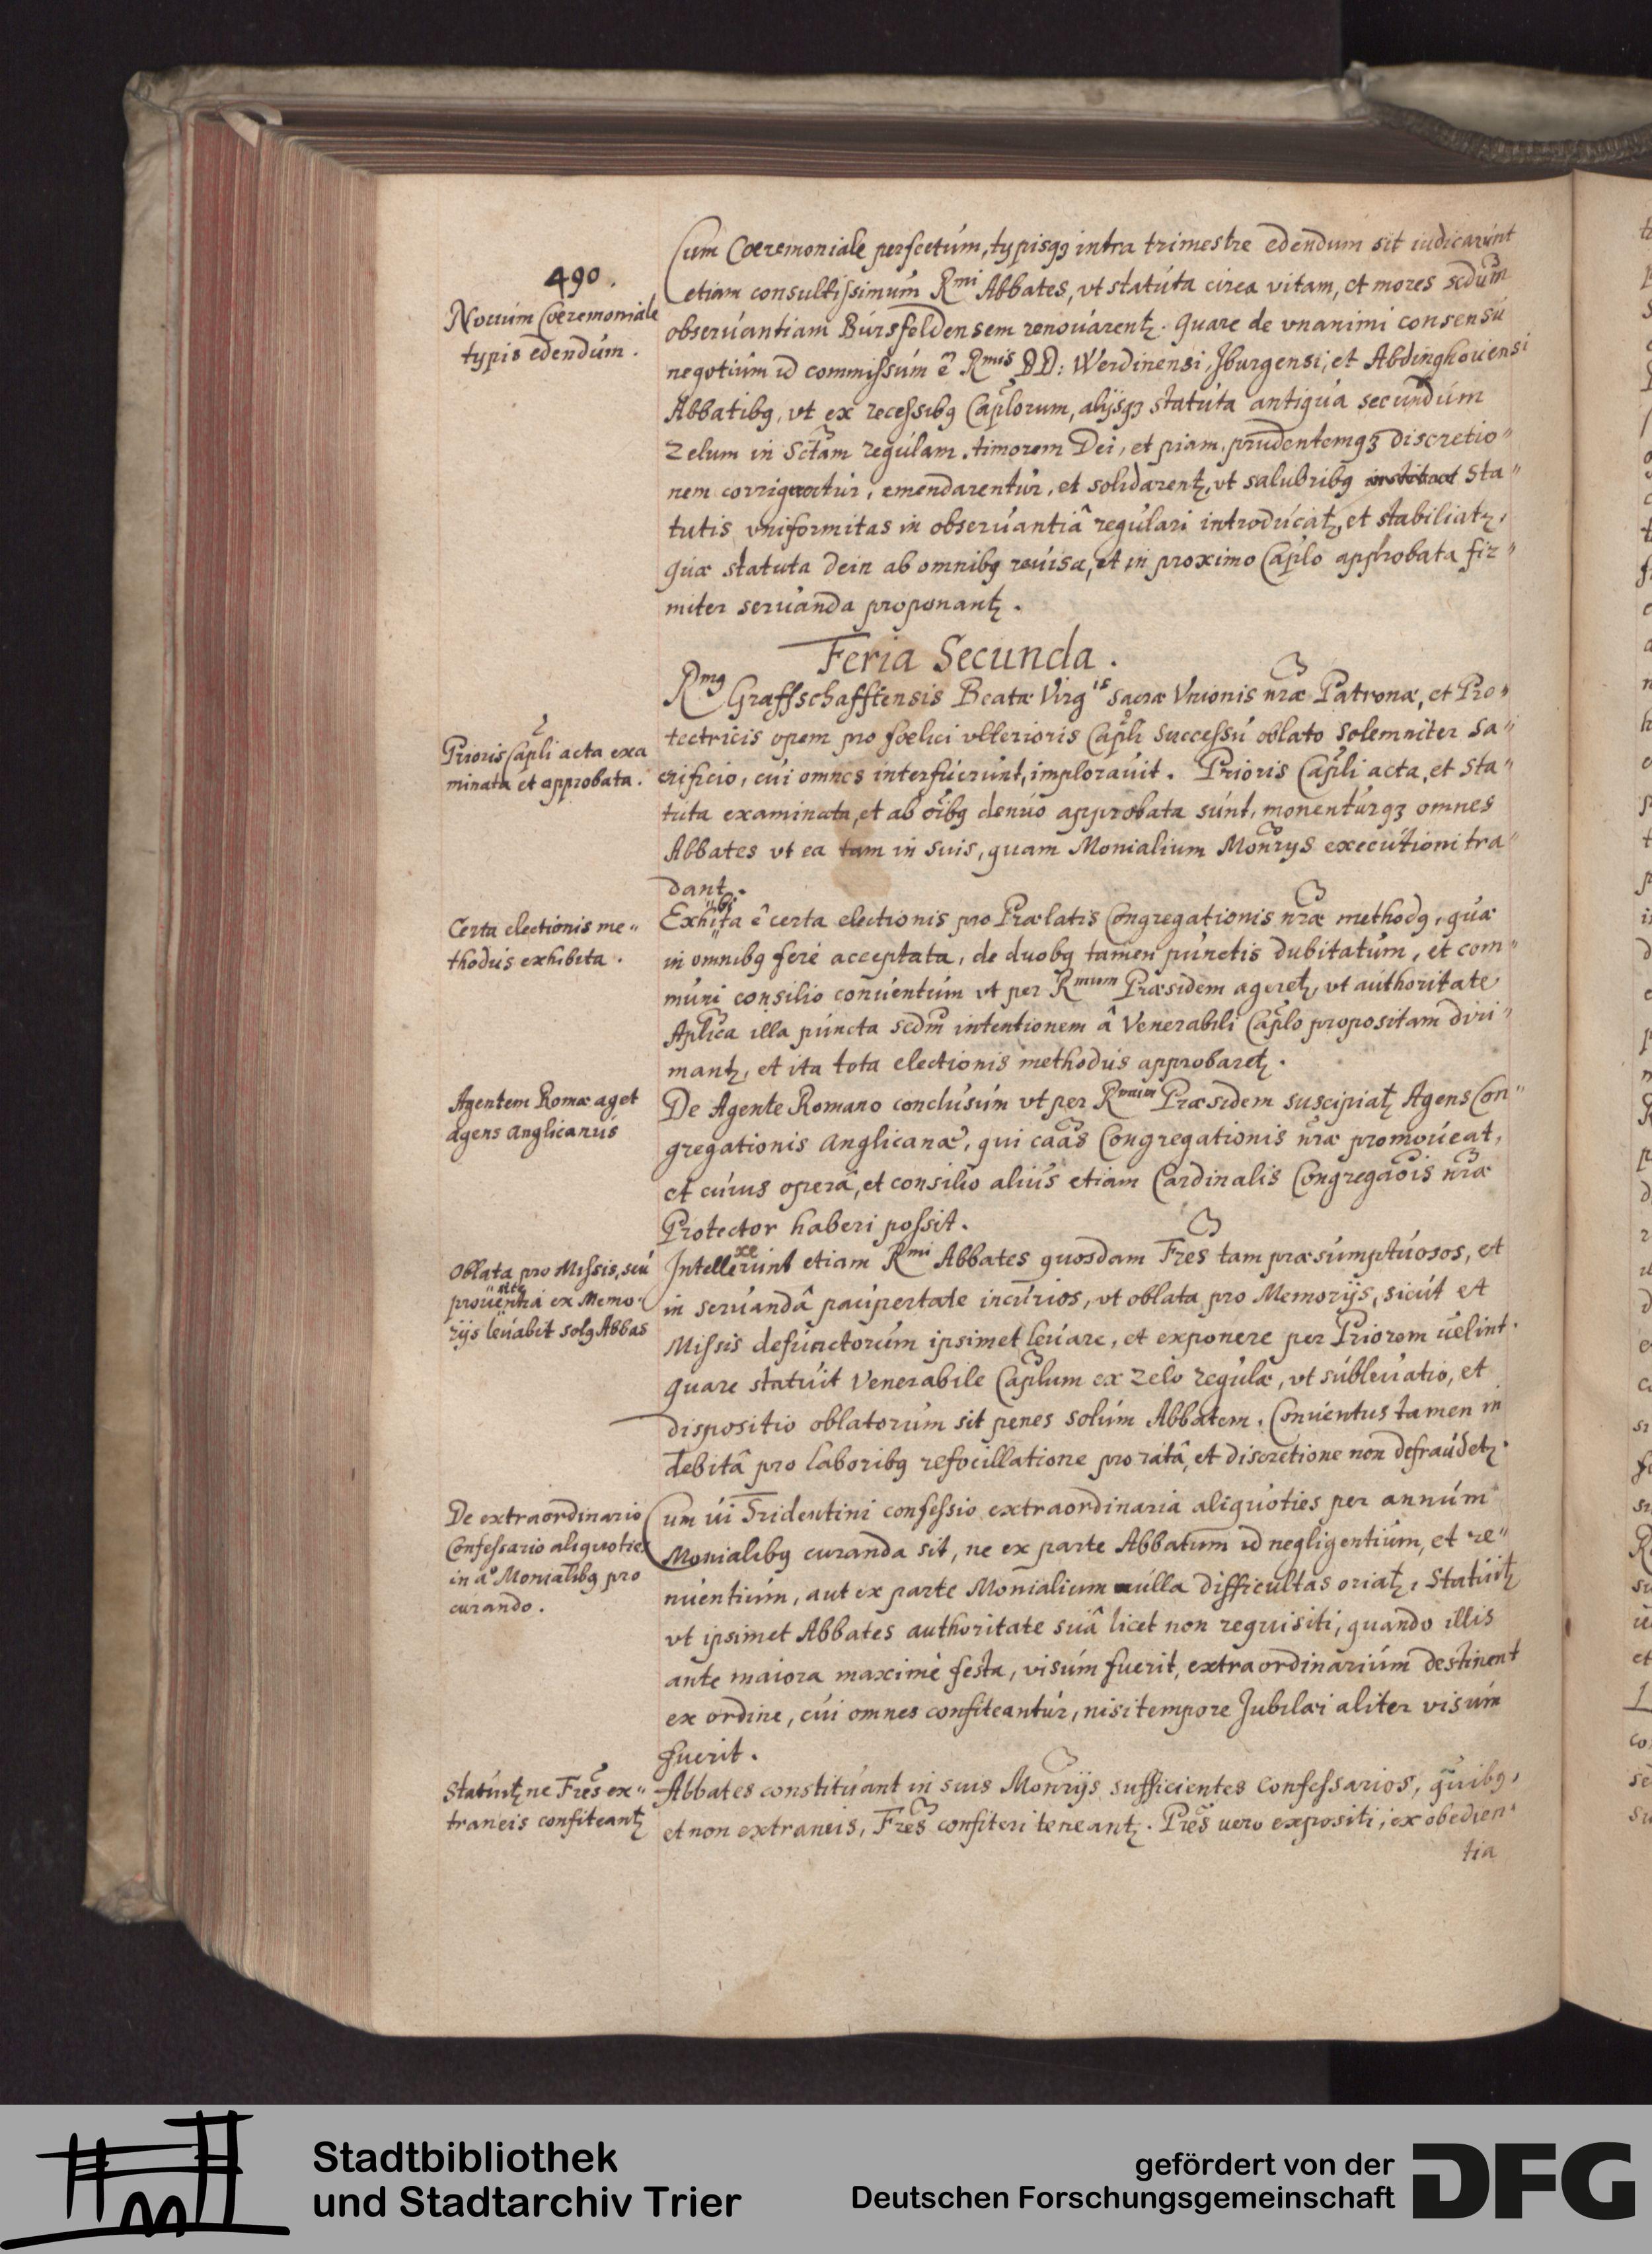 490.
Novum Cœremoniale
typis edendum.
Cum Cœremoniale perfectum, typisqȝ intra trimestre edendum sit iudicarunt
etiam consultissimum Rmi Abbates, vt statuta circa vitam, et mores scdum
observantiam Bursfeldensem renovarentꝫ. Quare de vnanimi consensu
negotium id commissum ē Rmis DD: Werdinensi, Jburgensi, et Abdinghoviensi
Abbatibꝗ, vt ex recessibꝗ Caplorum, alijsqȝ statuta antiqua secundum
zelum in Sctam regulam, timorem Dei, et piam, prudentemqȝ discretio"
nem corrigerentur, emendarentur, et solidarentꝫ, vt salubribꝗ sta"
tutis vniformitas in observantiâ regulari introducatꝫ, et stabiliatꝫ,
quæ statuta dein ab omnibꝗ revisa, et in proximo Caplo approbata fir"
miter servanda proponantꝫ.
Feria Secunda.
Rmꝗ Graffschafftensis Beatæ Virgis sacræ Vnionis nræ Patronæ, et Pro"
tectricis opem pro fœlici vlterioris Capli successu oblato solemniter sa"
Prioris Capli acta exa
minata et approbata.
crificio, cui omnes interfuerunt, imploravit. Prioris Capli acta, et sta"
tuta examinata, et ab oibꝗ denuo approbata sunt, monenturqȝ omnes
Abbates vt ea tam in suis, quam Monialium Monrys executioni tra"
dantꝫ.
Certa electionis me"
thodus exhibita.
Exhibita ē certa electionis pro Prælatis Congregationis nræ methodꝗ, quæ
in omnibꝗ fere acceptata, de duobꝗ tamen punctis dubitatum, et com"
muni consilio conventum vt per Rmum Præsidem ageretꝫ, vt authoritate
Aplica illa puncta scdm intentionem â Venerabili Caplo propositam diri"
mantꝫ, et ita tota electionis methodus approbaretꝫ.
Agentem Romæ aget
Agens Anglicanus
De Agente Romano conclusum vt per Rmum Præsidem suscipiatꝫ Agens Con"
gregationis Anglicanæ, qui caas Congregationis nræ promoveat,
et cuius operâ, et consilio alius etiam Cardinalis Congregaois nræ
Protector haberi possit.
Oblata pro Missis, seu
proventꝗ ex Memo"
rijs levabit solꝗ Abbas
Intellexerunt etiam Rmi Abbates quosdam Fres tam præsumptuosos, et
in servandâ paupertate incurios, vt oblata pro Memorijs, sicut et
Missis defunctorum ipsimet levare, et exponere per Priorem velint.
Quare statuit Venerabile Caplum ex zelo regulæ, vt sublevatio, et
dispositio oblatorum sit penes solum Abbatem. Conventus tamen in
debitâ pro laboribꝗ refocillatione pro ratâ, et discretione non defraudetꝫ.
De extraordinario
Confessario aliquoties
in ao Monialibꝗ pro
curando.
Cum vi Tridentini confessio extraordinaria aliquoties per annum
Monialibꝗ curanda sit, ne ex parte Abbatum id negligentium, et re"
nuentium, aut ex parte Monialium ulla difficultas oriatꝫ, Statuitꝫ
vt ipsimet Abbates authoritate suâ licet non requisiti, quando illis
ante maiora maxime festa, visum fuerit, extraordinarium destinent
ex ordine, cui omnes confiteantur, nisi tempore Jubilæi aliter visum
fuerit.
Statuitꝫ ne Fres ex"
traneis confiteantꝫ
Abbates constituant in suis Monrijs sufficientes Confessarios, quibꝗ,
et non extraneis, Fres confiteri teneantꝫ. Pres vero expositi, ex obedien"
tia
Stadtbibliothek
und Stadtarchiv Trier
gefördert von der
Deutschen Forschungsgemeinschaft
DFG